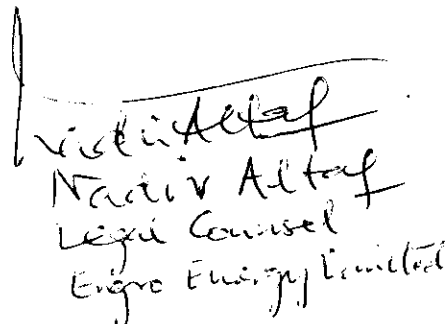 Altaf
Nadir Altaf
Legal Counsel
Engro Energy Limited